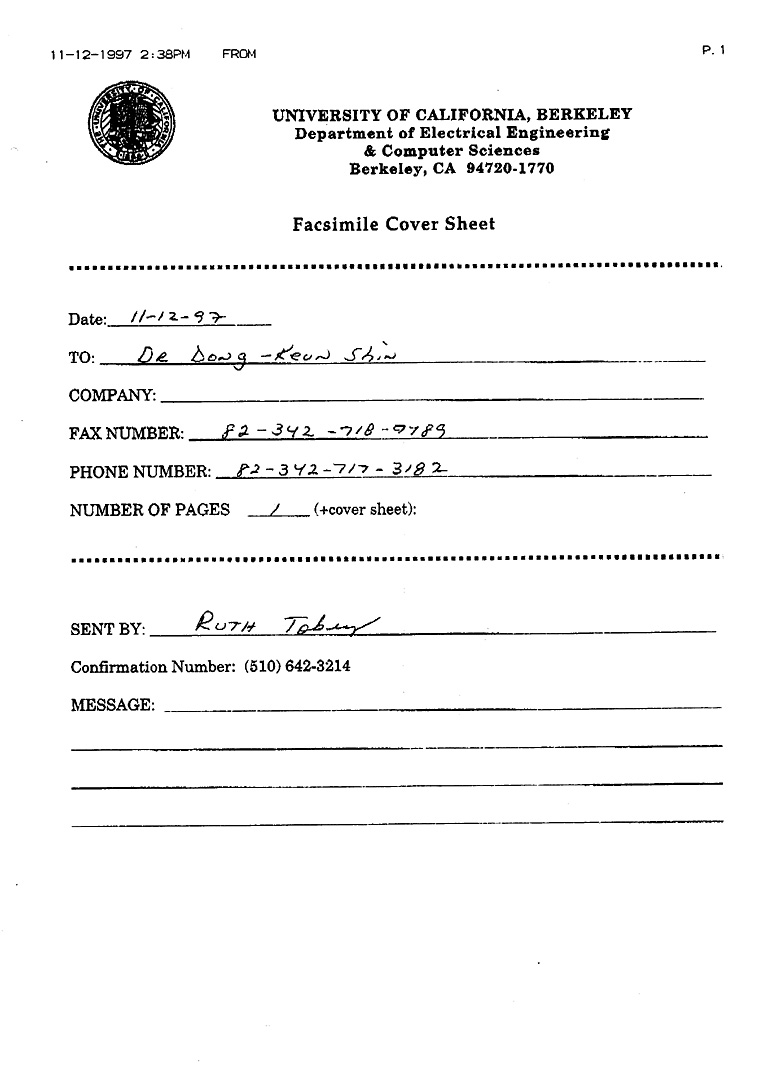 11-12-1997 2:38PM FROM P. 1
THE · UNIVERSITY · OF · CALIFORNIA · 1868
UNIVERSITY OF CALIFORNIA, BERKELEY
Department of Electrical Engineering
& Computer Sciences
Berkeley, CA 94720-1770
Facsimile Cover Sheet
Date: 11-12-97
TO: Dr Dong-Keun Shin
COMPANY:
FAX NUMBER: 82-342-718-9789
PHONE NUMBER: 82-342-717-3182
NUMBER OF PAGES 1 (+cover sheet):
SENT BY: RUTH Tobey
Confirmation Number: (510) 642-3214
MESSAGE: